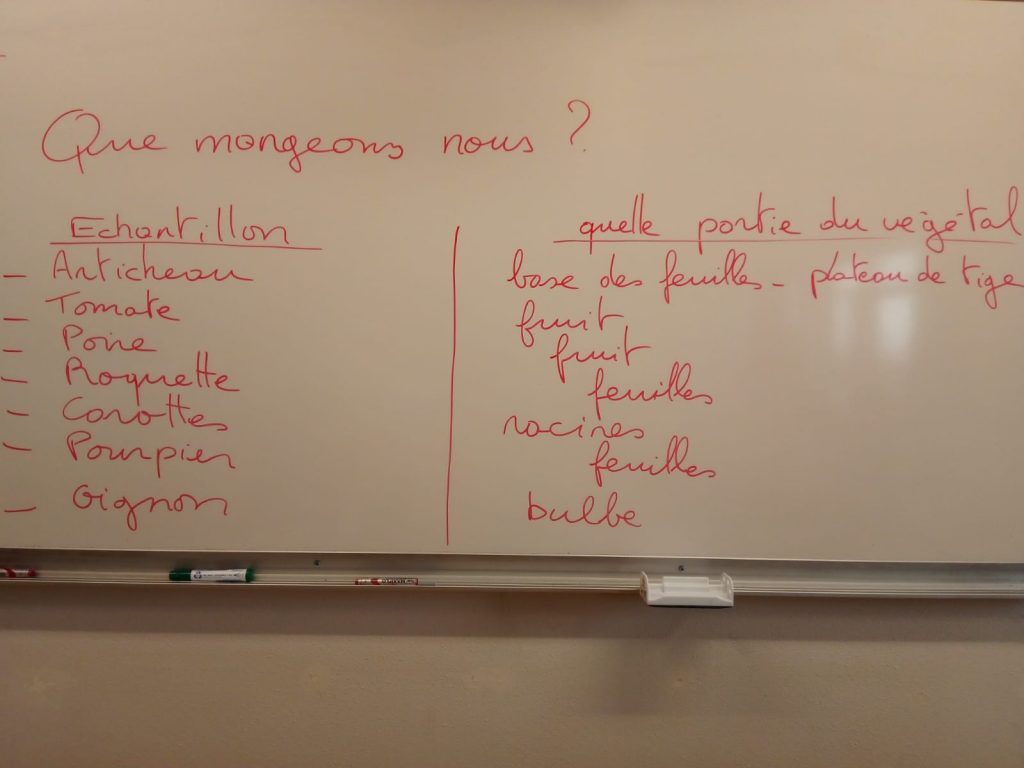 Que mangeons nous ?
Echantillon
quelle partie du végétal
- Artichaau
base des feuilles - plateau de tige
- Tomate
fruit
- Poire
fruit
- Roquette
feuilles
- Carottes
racines
- Pourpier
feuilles
- Oignon
bulbe